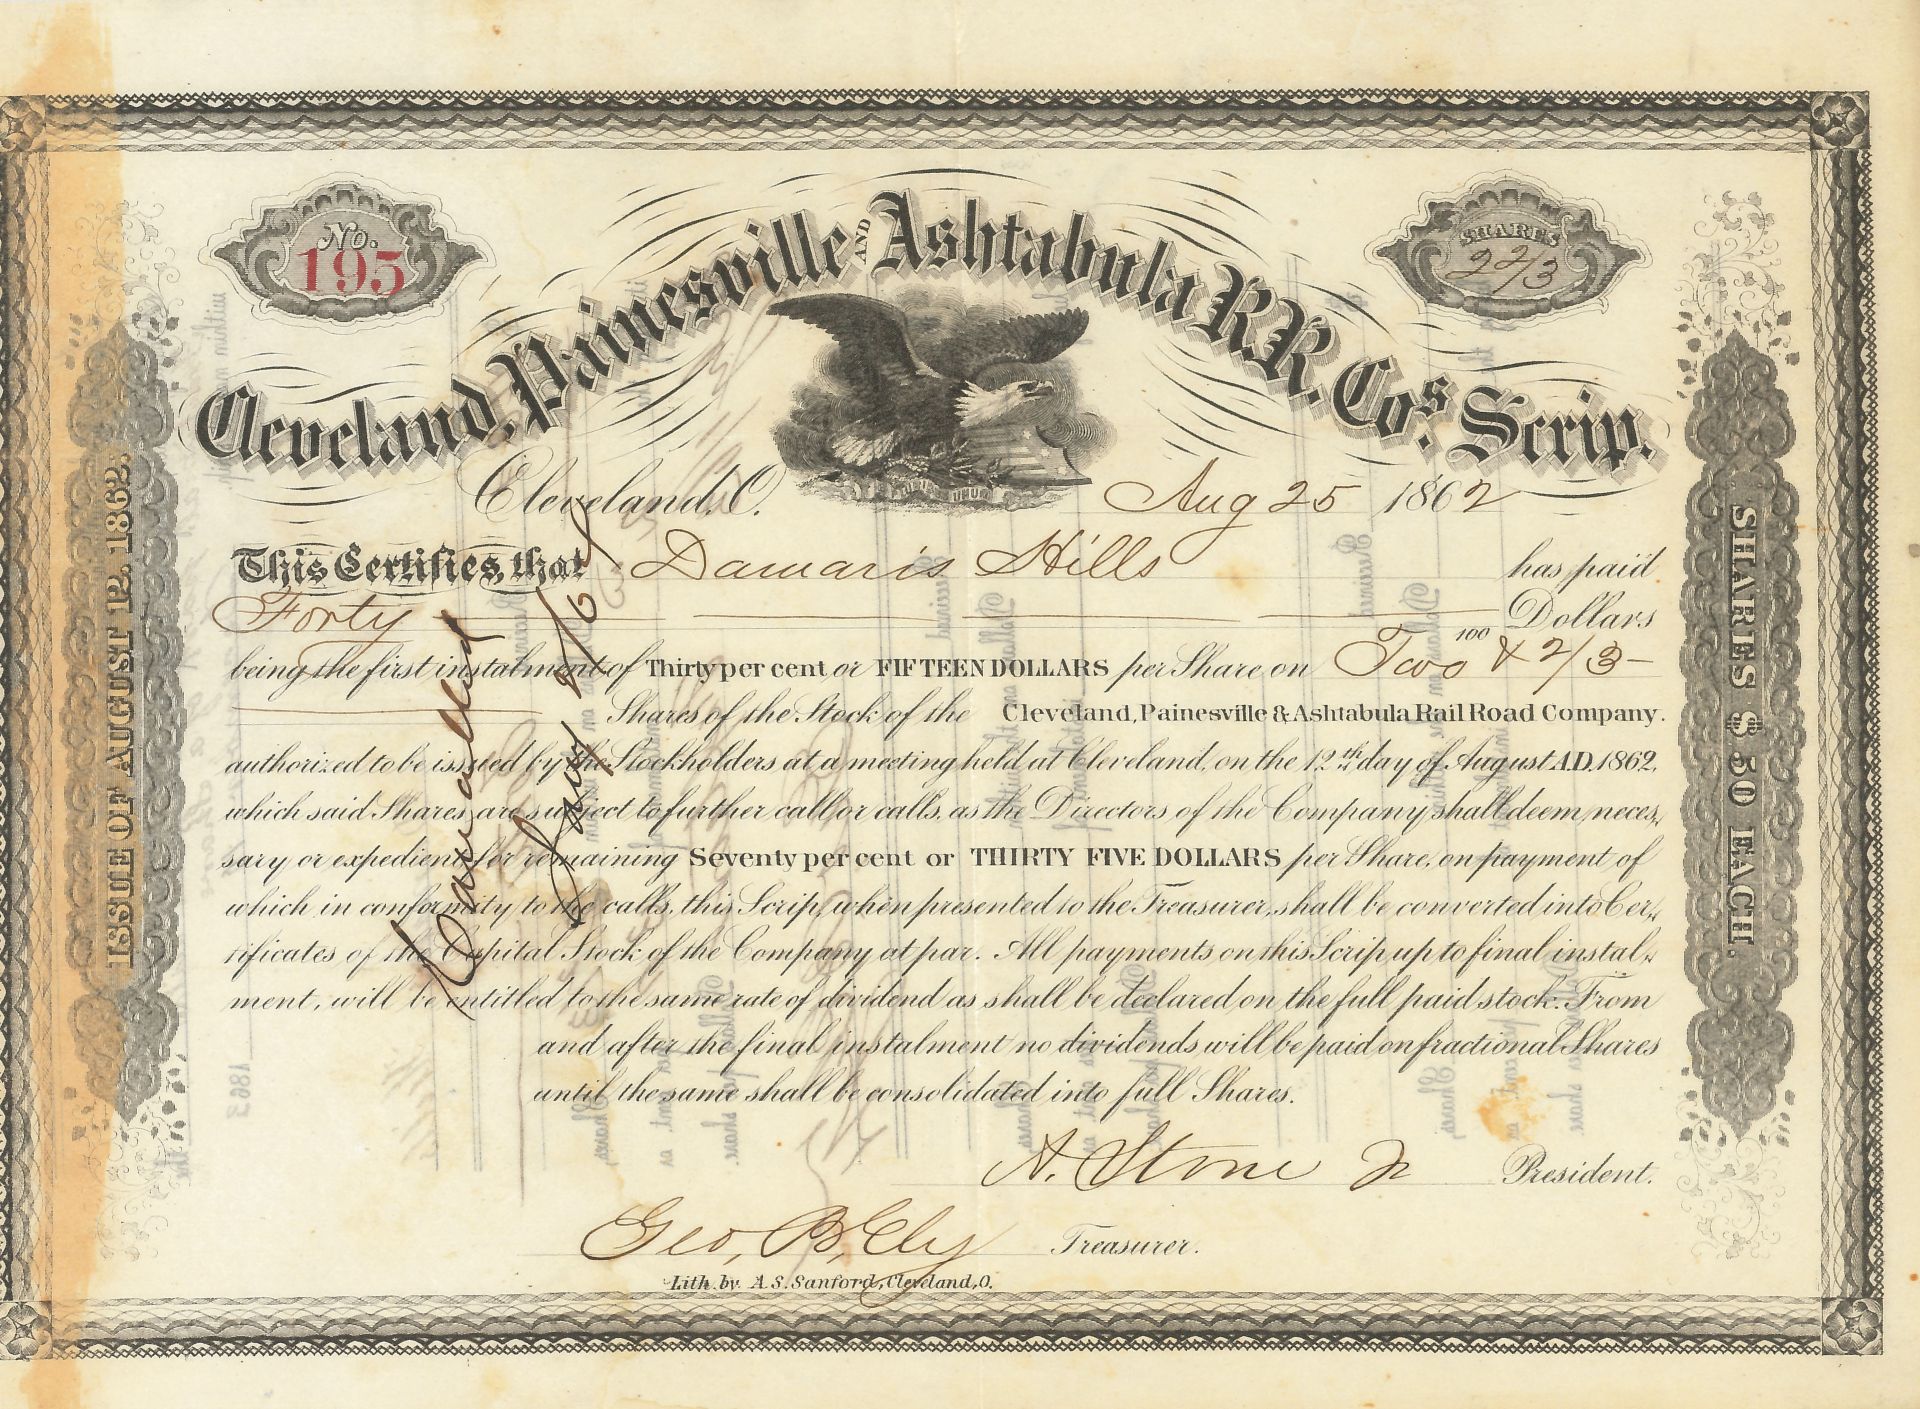 No.
195
SHARES
2 2/3
Cleveland, Painesville AND Ashtabula RR. Cos. Scrip.
Cleveland, O. Aug 25 1862
This Certifies, that Damaris Hills has paid
Forty 100 Dollars
being the first instalment of Thirty per cent or FIFTEEN DOLLARS per Share on Two & 2/3
Shares of the Stock of the Cleveland, Painesville & Ashtabula Rail Road Company.
authorized to be issued by the Stockholders at a meeting held at Cleveland, on the 12th day of August A.D. 1862,
which said Shares are subject to further call or calls, as the Directors of the Company shall deem neces,,
sary or expedient for remaining Seventy per cent or THIRTY FIVE DOLLARS per Share, on payment of
which in conformity to the calls, this Scrip, when presented to the Treasurer, shall be converted into Cer,,
tificates of the Capital Stock of the Company at par. All payments on this Scrip up to final instal,,
ment, will be entitled to the same rate of dividend as shall be declared on the full paid stock. From
and after the final instalment no dividends will be paid on fractional Shares
until the same shall be consolidated into full Shares.
A. Stone Jr President.
Geo, B, Ely Treasurer.
Lith. by A. S. Sanford, Cleveland, O.
ISSUE OF AUGUST 12, 1862.
SHARES $ 50 EACH.
Cancelled